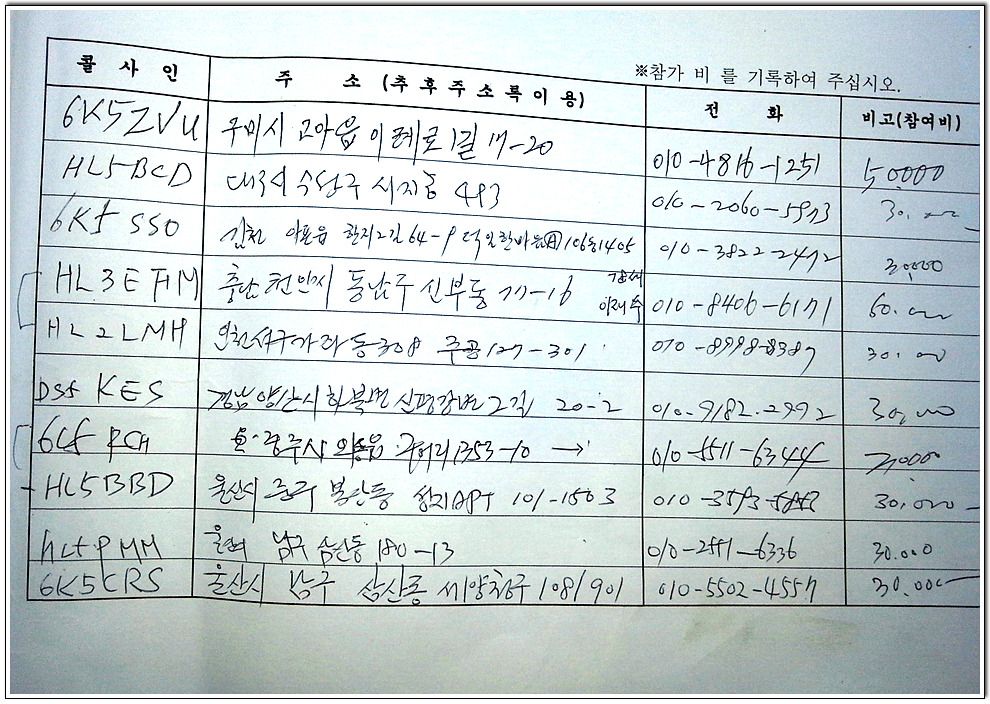 ※참가 비 를 기록하여 주십시오.
콜 사 인 주 소 (추후주소록이용) 전 화 비고(참여비)
6K5ZVU 구미시 고아읍 이례로 1길 17-20 010-4816-1251 50000
HL5BCD 대구시 수성구 시지동 493 010-2060-5973 30.000
6K5 SSO 김천 아포읍 한지2길 64-9 덕일한마음 106동1405 010-3822-2472 30000
HL3EHM 충남 천안시 동남구 신부동 77-16 010-8406-6171 60.000
HL2LMH 인천서구가좌동308 주공127-301 070-8998-8387 30.000
DS5 KES 경남양산시하북면 신평강변2길 20-2 010-9182-2992 30,000
6L5 PCH 경주시 외동읍 구어리1353-10 → 010-5511-6344
HL5BBD 울산시 중구 복산동 APT 101-1503 010-3593- 30,000
HL5PMM 울산 남구 삼산동 180-13 010-2551-6336 30.000
6K5CRS 울산시 남구 삼산동 세양청구 108/901 010-5502-4557 30.000